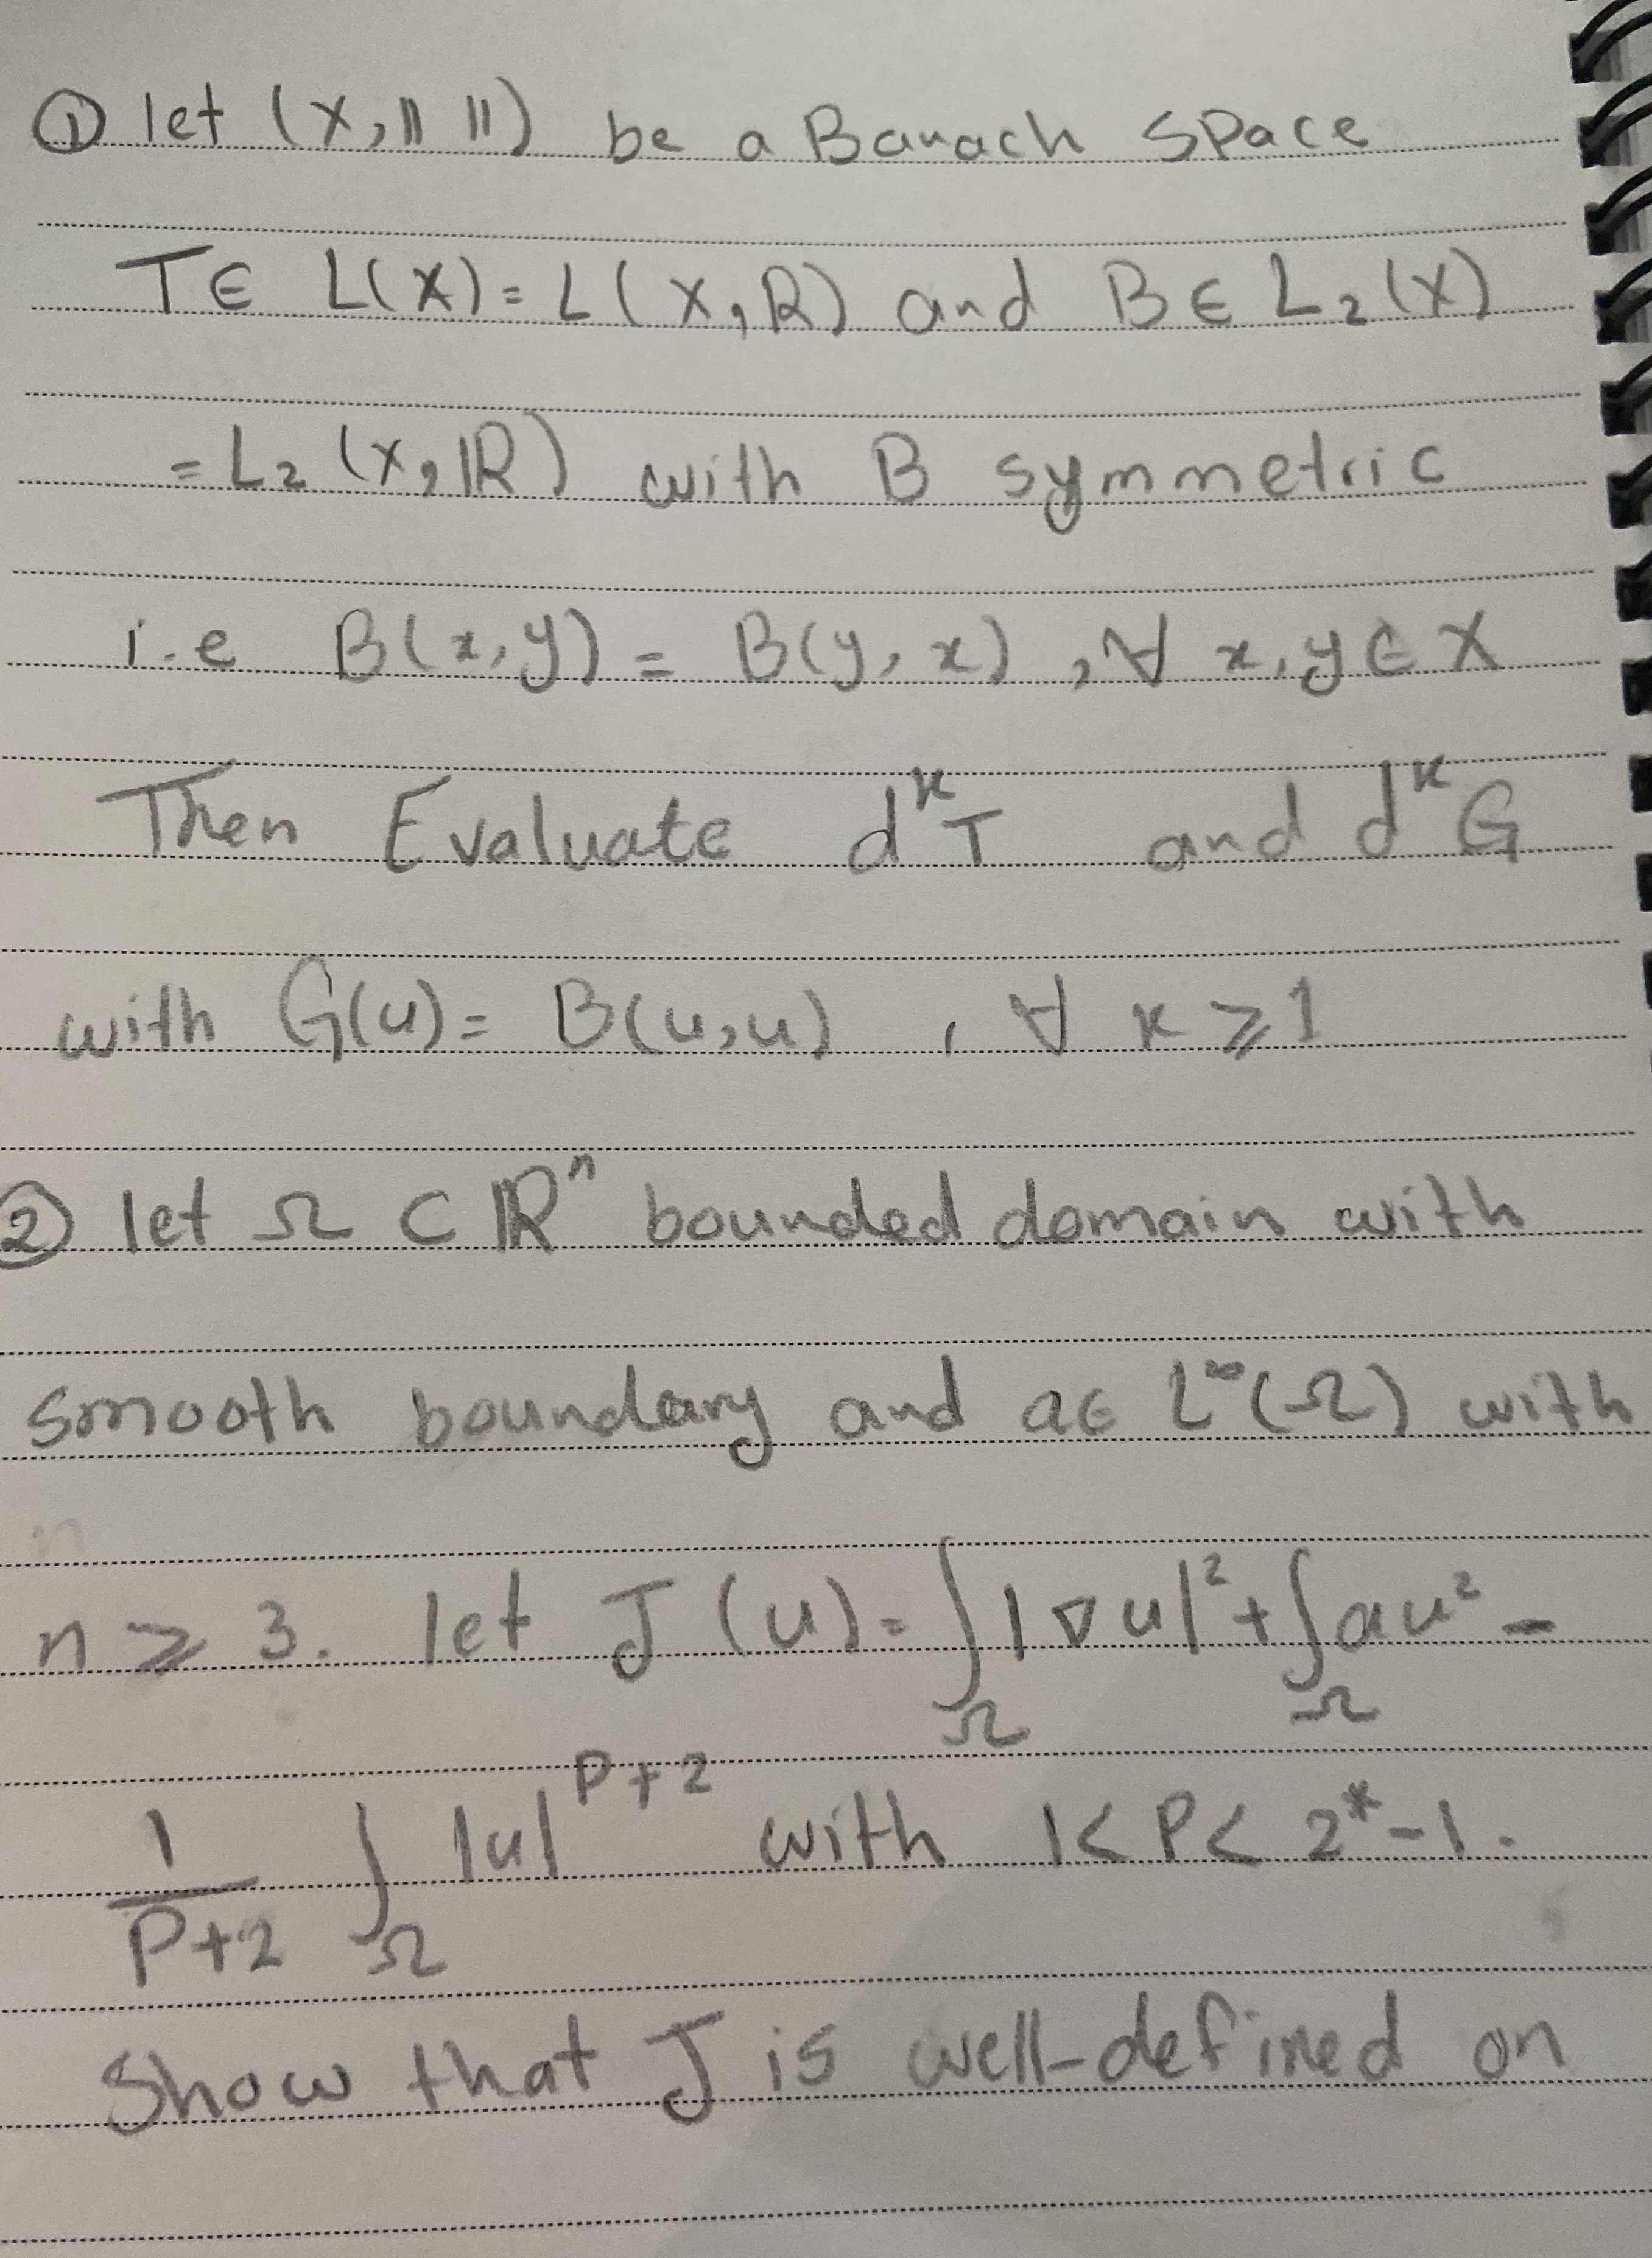 ① let (X, || ||) be a Banach space
T∈ L(X) = L(X, R) and B∈ L₂(X)
= L₂(X, ℝ) with B symmetric
i.e B(x,y) = B(y,x), ∀ x,y∈X
Then Evaluate dᵏT and dᵏG
with G(u) = B(u,u) , ∀ k ⩾ 1
② let Ω ⊂ ℝⁿ bounded domain with
smooth boundary and a∈ L^∞(Ω) with
n ⩾ 3. let J(u) = ∫_Ω |∇u|² + ∫_Ω au² -
1/(P+2) ∫_Ω |u|^(P+2) with 1< P< 2*-1.
Show that J is well-defined on